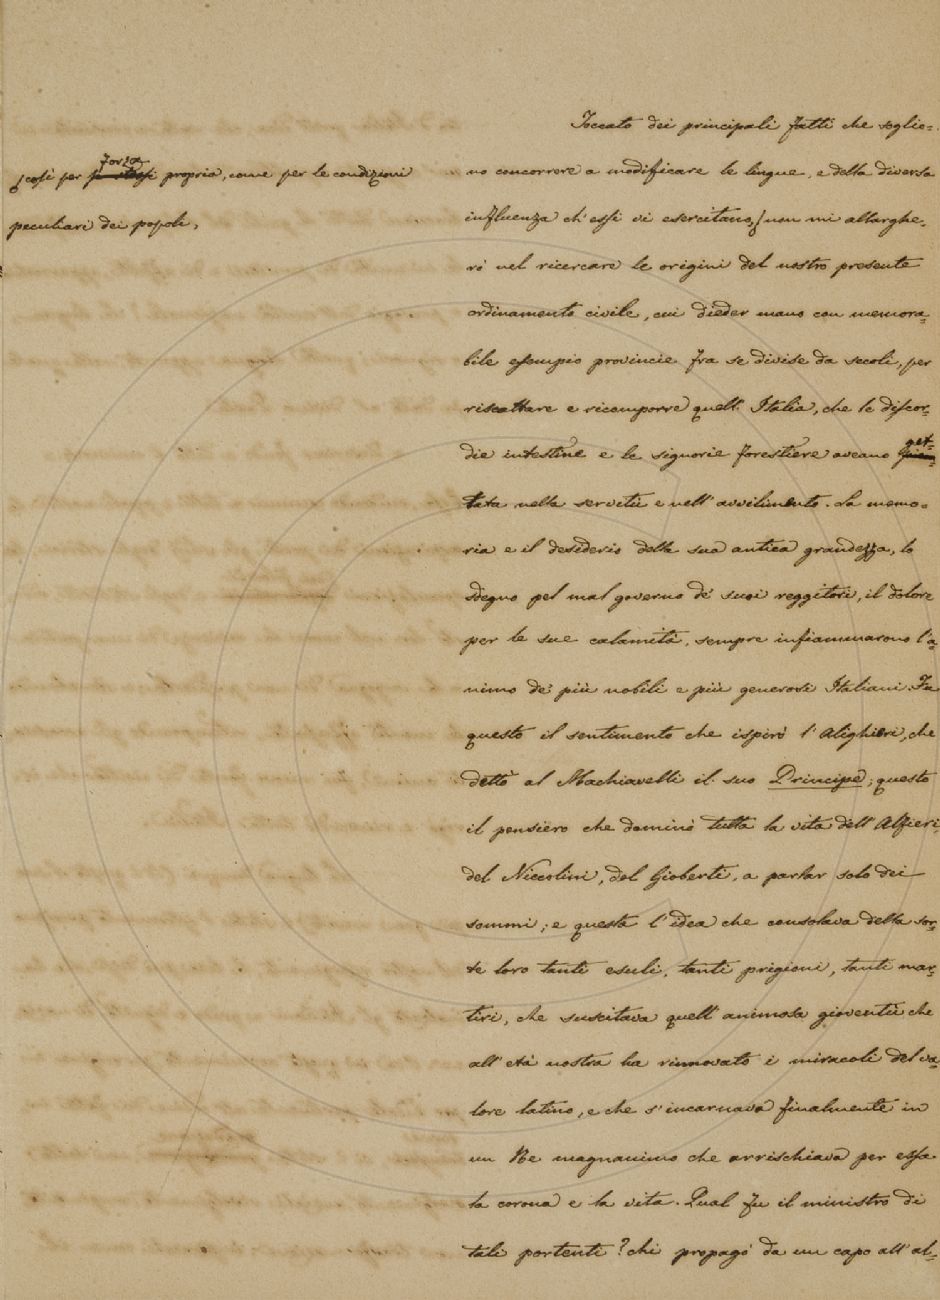 Toccato dei principali fatti che soglio=
no concorrere a modificare le lingue, e della diversa
influenza ch'essi vi esercitano, non mi allarghe=
rò nel ricercare le origini del nostro presente
ordinamento civile, cui dieder mano con memora=
bile esempio provincie fra se divise da secoli, per
riscattare e ricomporre quell'Italia, che le discor=
die intestine e le signorie forestiere aveano get=
tata nella servitù e nell'avvilimento. La memo=
ria e il desiderio della sua antica grandezza, lo
sdegno pel mal governo de' suoi reggitori, il dolore
per le sue calamità, sempre infiammarono l'a=
nimo de' più nobili e più generosi Italiani. Fu
questo il sentimento che ispirò l'Alighieri, che
dettò al Machiavelli il suo Principe; questo
il pensiero che dominò tutta la vita dell'Alfieri,
del Niccolini, del Gioberti, a parlar solo dei
sommi; e questa l'idea che consolava della sor=
te loro tanti esuli, tanti prigioni, tanti mar=
tiri, che suscitava quell'animosa gioventù che
all'età nostra ha rinnovato i miracoli del va=
lore latino, e che s'incarnava finalmente in
un Re magnanimo che arrischiava per essa
la corona e la vita. Qual fu il ministro di
tali portenti? chi propagò da un capo all'al=
così per forza propria, come per le condizioni
peculiari dei popoli,